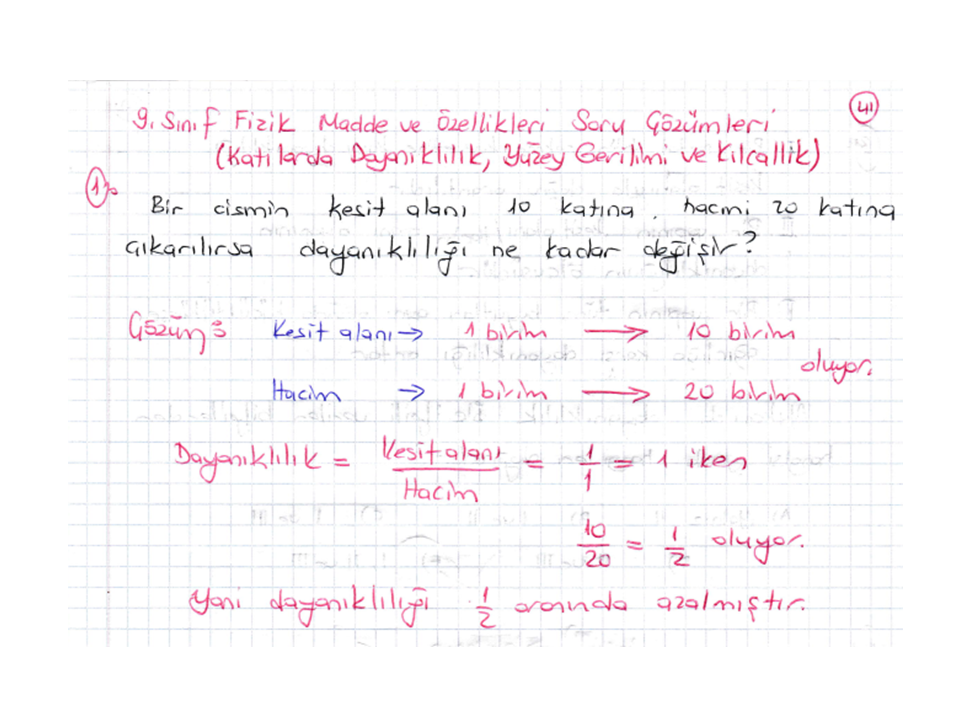 41
9. Sınıf Fizik Madde ve Özellikleri Soru Çözümleri
(Katılarda Dayanıklılık, Yüzey Gerilimi ve Kılcallık)
1)
Bir cismin kesit alanı 10 katına, hacmi 20 katına
çıkarılırsa dayanıklılığı ne kadar değişir?
Çözüm: Kesit alanı → 1 birim → 10 birim
oluyor.
Hacim → 1 birim → 20 birim
Dayanıklılık = Kesit alanı / Hacim = 1/1 = 1 iken
10/20 = 1/2 oluyor.
Yani dayanıklılığı 1/2 oranında azalmıştır.